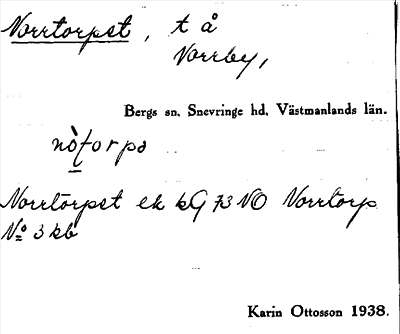 Norrtorpet, t å
Norrby,
Bergs sn. Snevringe hd. Västmanlands län.
nòtorpə
Norrtorpet ek kG 73 NO Norrtorp
No 3 kb
Karin Ottosson 1938.